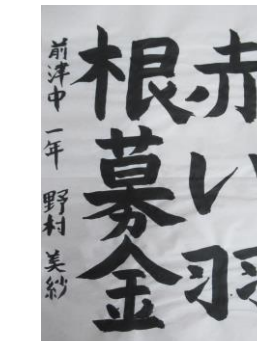 赤い羽
根募金
前津中 一年 野村 美紗